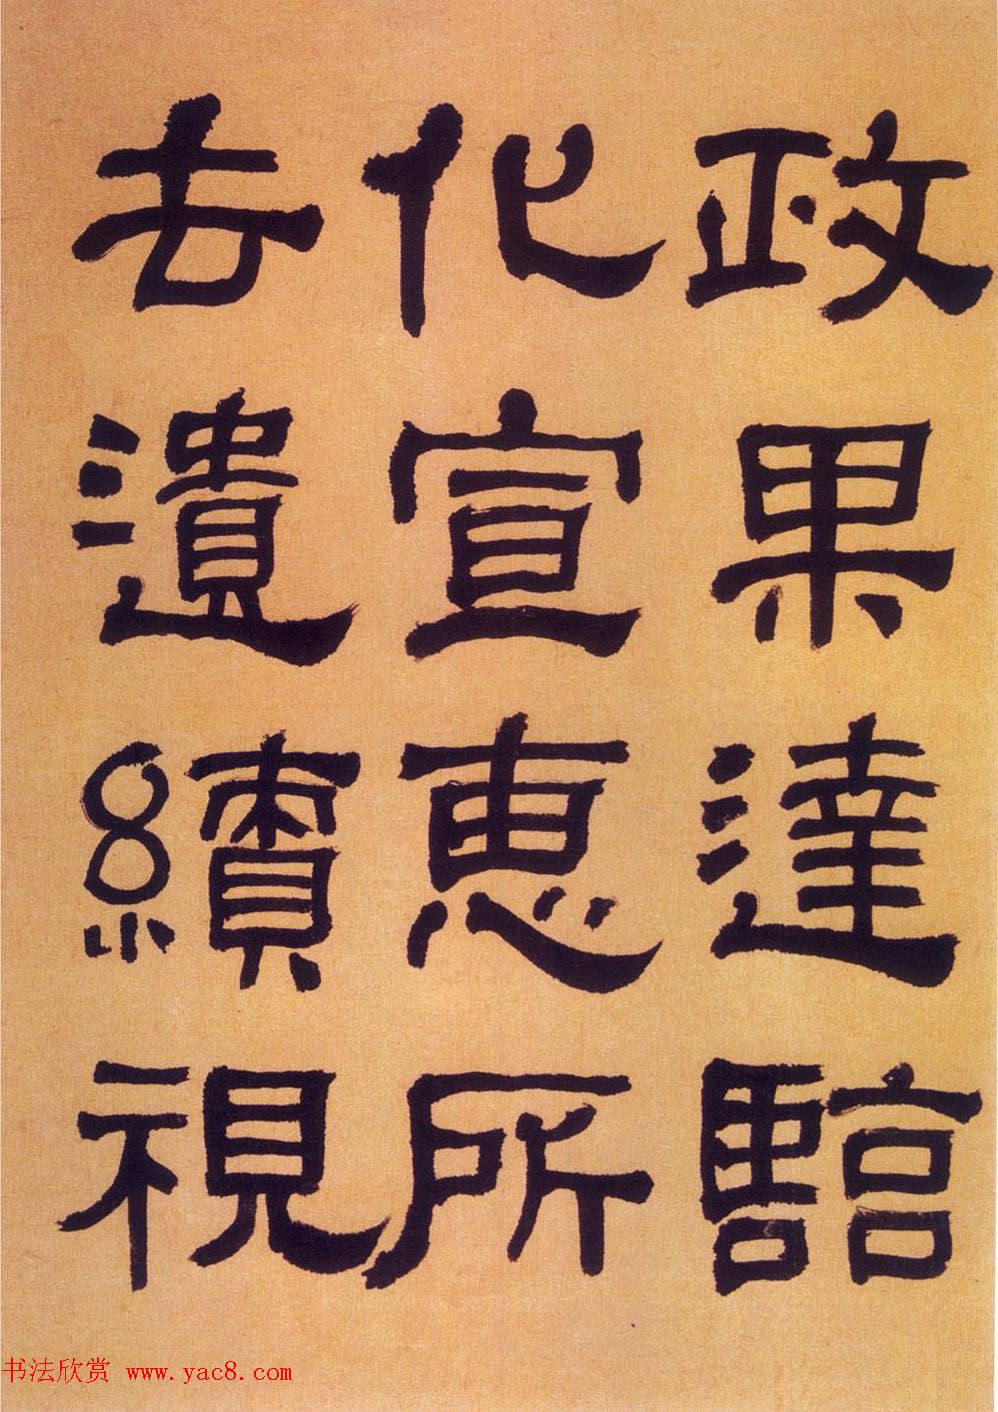 政果達臨
化宣惠所
去遺績視
书法欣赏 www.yac8.com